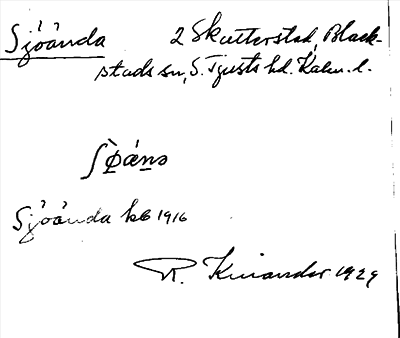 Sjöända 2 Skutterstad, Black-
stads sn, S. Tjusts hd. Kalm. l.
Sjöända kb 1916
R. Kinander 1929